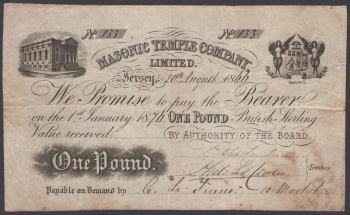 No. 133 No. 133
MASONIC TEMPLE COMPANY,
LIMITED.
Jersey, 20th August 1866
We Promise to pay the Bearer
on the 1st January 1876 ONE POUND British Sterling
Value received.
BY AUTHORITY OF THE BOARD.
One Pound.
Trustees
Payable on Demand by C. Le